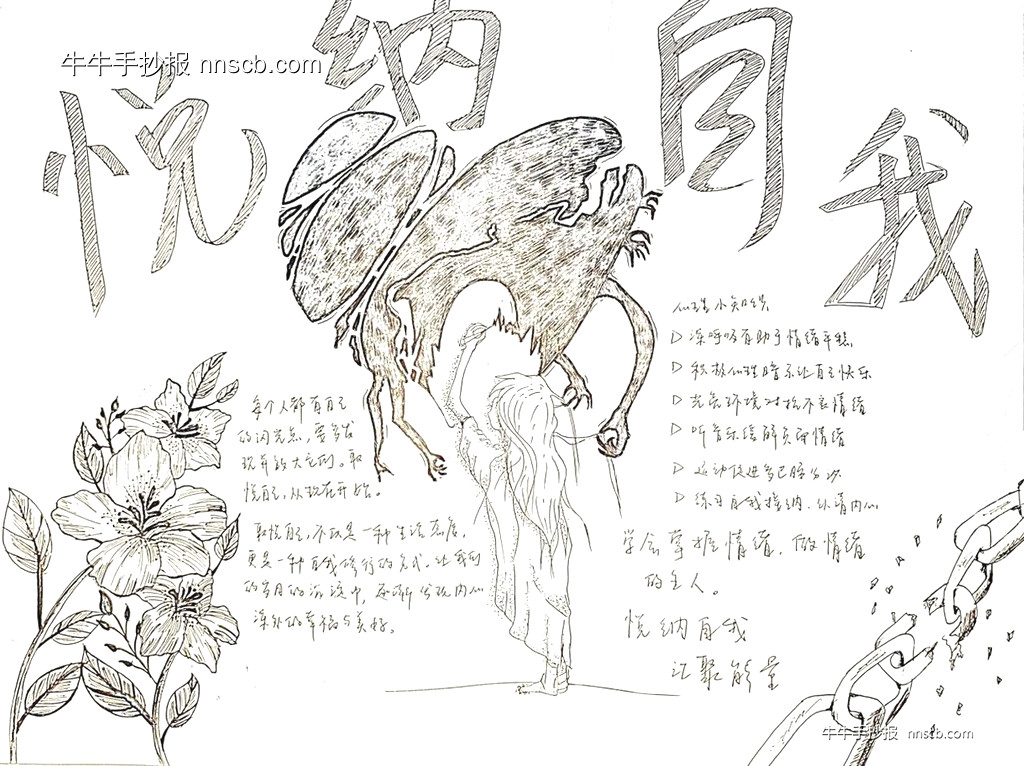 悦纳自我
牛牛手抄报 nnscb.com
每个人都有自己
的闪光点，要多发
现并放大它们。取
悦自己，从现在开始。
取悦自己，不仅是一种生活态度，
更是一种自我修行的方式，让我们
的岁月的沉淀中，逐渐发现内心
深处的幸福与美好。
心理小知识
深呼吸有助于情绪平稳
积极心理暗示让自己快乐
光亮环境对抗不良情绪
听音乐缓解负面情绪
运动促进多巴胺分泌
练习自我接纳，认清内心
学会掌握情绪，做情绪
的主人。
悦纳自我
汇聚能量
牛牛手抄报 nnscb.com